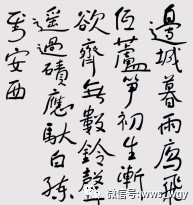 邊城暮雨雁飛
低蘆笋初生漸
欲齊無數鈴聲
遥過磧應馱白練
到安西
微信号: